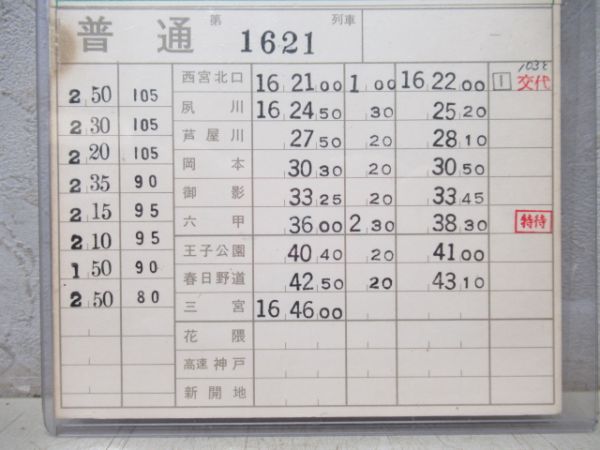 普通 第 1621 列車
西宮北口 16 21 00 1 00 16 22 00 1 交代
2 50 105
夙川 16 24 50 30 25 20
2 30 105
芦屋川 27 50 20 28 10
2 20 105
岡本 30 30 20 30 50
2 35 90
御影 33 25 20 33 45
2 15 95
六甲 36 00 2 30 38 30 特待
2 10 95
王子公園 40 40 20 41 00
1 50 90
春日野道 42 50 20 43 10
2 50 80
三宮 16 46 00
花隈
高速神戸
新開地